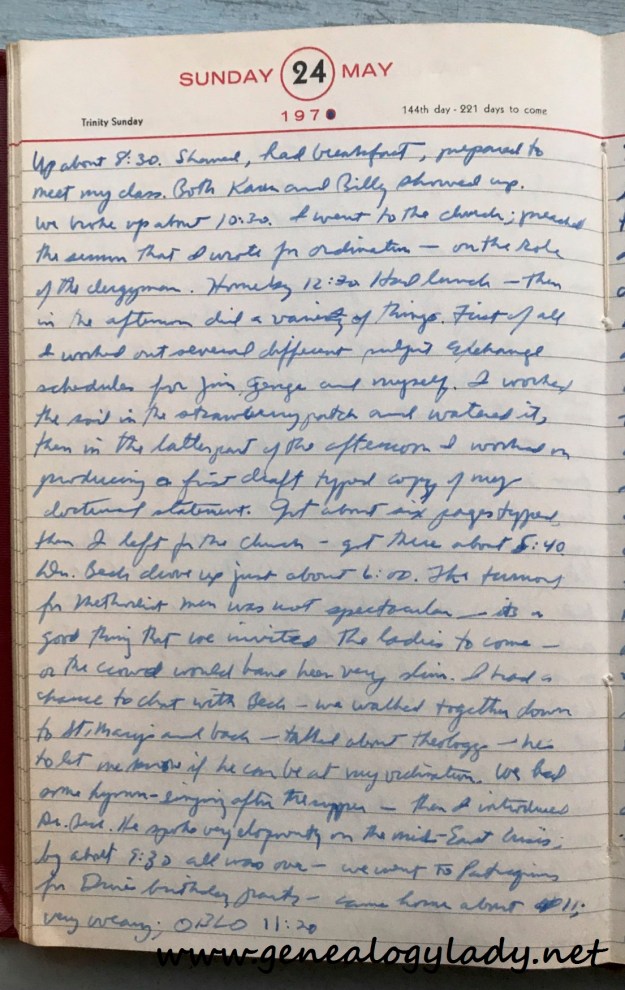 SUNDAY 24 MAY
Trinity Sunday 1970 144th day - 221 days to come
Up about 8:30. Shaved, had breakfast, prepared to
meet my class. Both Karen and Billy showed up.
We broke up about 10:30. I went to the church; preached
the sermon that I wrote for ordination — on the Role
of the clergyman. Home by 12:30 Had lunch — then
in the afternoon did a variety of things. First of all
I worked out several different pulpit exchange
schedules for Jim, George and myself. I worked
the soil in the strawberry patch and watered it,
then in the latter part of the afternoon I worked on
producing a first draft typed copy of my
doctrinal statement. Got about six pages typed,
then I left for the church — got there about 5:40
Dr. Beck drove up just about 6:00. The turnout
for Methodist Men was not spectacular — its a
good thing that we invited the ladies to come —
or the crowd would have been very slim. I had a
chance to chat with Beck — we walked together down
to St. Mary's and back — talked about theology — he's
to let me know if he can be at my ordination. We had
some hymn-singing after the supper — then I introduced
Dr. Beck. He spoke very eloquently on the mid-East Crisis;
by about 9:30 all was over — we went to
for birthday party — came home about 11;
very weary; 11:20
www.genealogylady.net